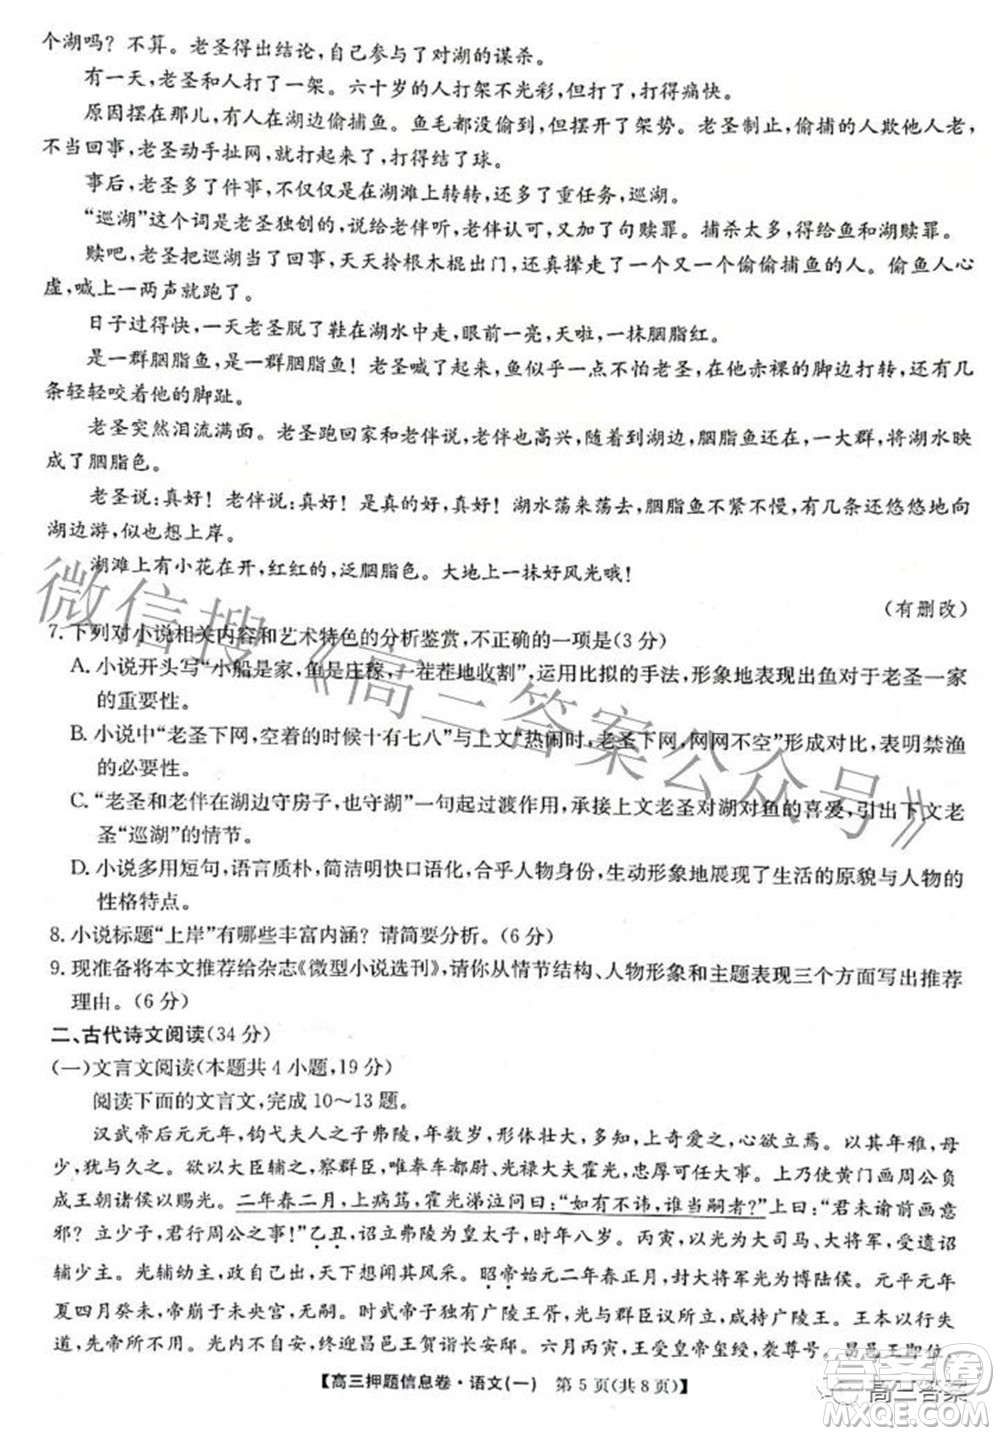 个湖吗？不算。老圣得出结论，自己参与了对湖的谋杀。
有一天，老圣和人打了一架。六十岁的人打架不光彩，但打得痛快。
原因摆在那儿，有人在湖边偷捕鱼。鱼毛都没偷到，但摆开了架势。老圣制止，偷捕的人欺他人老，
不当回事，老圣动手扯网，打起来了，打得结了球。
事后，老圣多了件事，不仅仅是在湖滩上转转，还多了重任务，巡湖。
“巡湖”这个词是老圣独创的，说给老伴听，老伴认可，又加了句赎罪。捕杀太多，得给鱼和湖赎罪。
赎吧，老圣把巡湖当了回事，天天拎根木棍出门，还真撵走了一个又一个偷偷捕鱼的人。偷鱼人心
虚，喊上一两声就跑了。
日子过得快，一天老圣脱了鞋在湖水中走，眼前一亮，天啦，一抹胭脂红。
是一群胭脂鱼，一群胭脂鱼！老圣喊了起来。鱼似乎一点不怕老圣，在他赤裸的脚边打转，有几
条轻轻咬着他的脚趾。
老圣突然泪流满面。老圣跑回家和老伴说，老伴也高兴，奔到了湖边，胭脂鱼在，一大群，将湖水映
成了胭脂色。
老圣说：真好！老伴说：真好！真的好！湖水荡来荡去，胭脂鱼不紧不慢，有几条还悠悠地向
湖边游，似也想上岸。
湖滩上有小花在开，红红的，泛胭脂色。大地上一抹好风光哦！
（有删改）
7. 下列对小说相关内容和艺术特色的分析鉴赏，不正确的一项是(3 分)
A. 小说开头写“小船是家，鱼是庄稼，一茬茬地收割”，运用了比拟的手法，形象地表现出鱼对老圣一家
的重要性。
B. 小说中“老圣下网，空着的时候十有七八”与上文“热闹时，老圣下网，网网不空”形成对比，表明禁渔
的必要性。
C. “老圣和老伴在湖边守房子，也守湖”一句起过渡作用，承接上文老圣对湖对鱼的喜爱，引出下文老
圣“巡湖”的情节。
D. 小说多用短句，语言质朴，简洁明快口语化，合乎人物身份，生动形象地展现了生活的原貌与人物的
性格特点。
8. 小说标题“上岸”有哪些丰富内涵？请简要分析。(6 分)
9. 现准备将本文推荐给杂志《微型小说选刊》，请你从情节结构、人物形象和主题表现三个方面写出推荐
理由。(6 分)
二、古代诗文阅读(34 分)
(一)文言文阅读(本题共 4 小题，19 分)
阅读下面的文言文，完成 10～13 题。
汉武帝后元元年，钩弋夫人之子弗陵，年数岁，形体壮大，多知，上奇爱之，心欲立焉。以其年稚，母
少，犹与久之。欲以大臣辅之，察群臣，唯奉车都尉、光禄大夫霍光，忠厚可任大事。上乃使黄门画周公负
成王朝诸侯以赐光。二年春二月，上病笃，霍光涕泣问曰：“如有不讳，谁当嗣者？”上曰：“君未谕前画意
邪？立少子，君行周公之事！”乙丑，诏立弗陵为皇太子，时年八岁。丙寅，以光为大司马、大将军，受遗诏
辅少主。光辅幼主，政自己出，天下想闻其风采。昭帝始元二年春正月，封大将军光为博陆侯。元平元年
夏四月癸未，帝崩于未央宫，无嗣。时武帝子独有广陵王胥，光与群臣议所立，咸持广陵王。王本以行失
道，先帝所不用。光内不自安，终迎昌邑王贺诣长安邸。六月丙寅，王受皇帝玺绶，袭尊号。昌邑王即位，
【高三押题信息卷·语文(一)　第 5 页(共 8 页)】
微信搜《高三答案公众号》
答案圈
高三答案
MXQE.COM